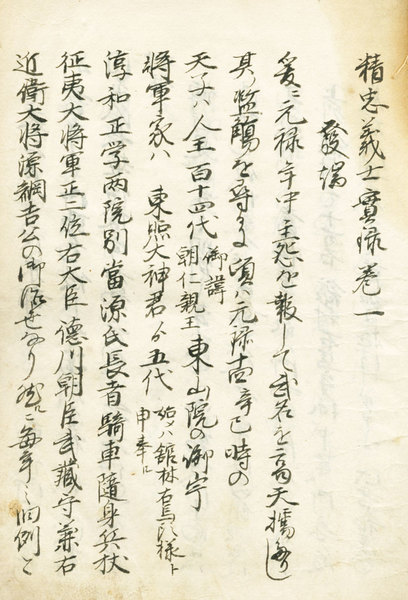 精忠義士實録巻一
發端
爰ニ元禄年中主怨を報して武名を高天播せし
其濫觴を尋るに頃ハ元禄十四辛巳時の
天子ハ人王百十四代御諱朝仁親王東山院の御宇
将軍家ハ東照大神君より五代始ハ舘林右馬頭様ト申奉ル
淳和正学両院別當源氏長者騎車随身兵杖
征夷大将軍正二位右大臣徳川朝臣武蔵守兼右
近衛大将源綱吉公の御治世なり然るに毎年之旧例と